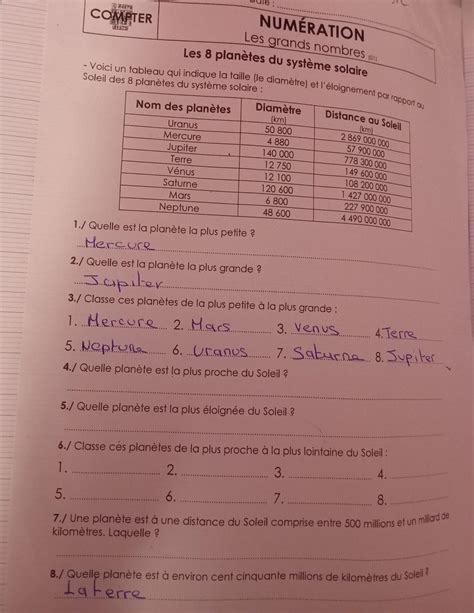 COMPTER
NUMÉRATION
Les grands nombres
Les 8 planètes du système solaire
- Voici un tableau qui indique la taille (le diamètre) et l'éloignement par rapport au
Soleil des 8 planètes du système solaire :
Nom des planètes Diamètre (km) Distance au Soleil (km)
Uranus 50 800 2 869 000 000
Mercure 4 880 57 900 000
Jupiter 140 000 778 300 000
Terre 12 750 149 600 000
Vénus 12 100 108 200 000
Saturne 120 600 1 427 000 000
Mars 6 800 227 900 000
Neptune 48 600 4 490 000 000
1./ Quelle est la planète la plus petite ?
Mercure
2./ Quelle est la planète la plus grande ?
Jupiter
3./ Classe ces planètes de la plus petite à la plus grande :
1. Mercure 2. Mars 3. Venus 4. Terre
5. Neptune 6. Uranus 7. Saturne 8. Jupiter
4./ Quelle planète est la plus proche du Soleil ?
5./ Quelle planète est la plus éloignée du Soleil ?
6./ Classe ces planètes de la plus proche à la plus lointaine du Soleil :
1. 2. 3. 4.
5. 6. 7. 8.
7./ Une planète est à une distance du Soleil comprise entre 500 millions et un milliard de
kilomètres. Laquelle ?
8./ Quelle planète est à environ cent cinquante millions de kilomètres du Soleil ?
La terre